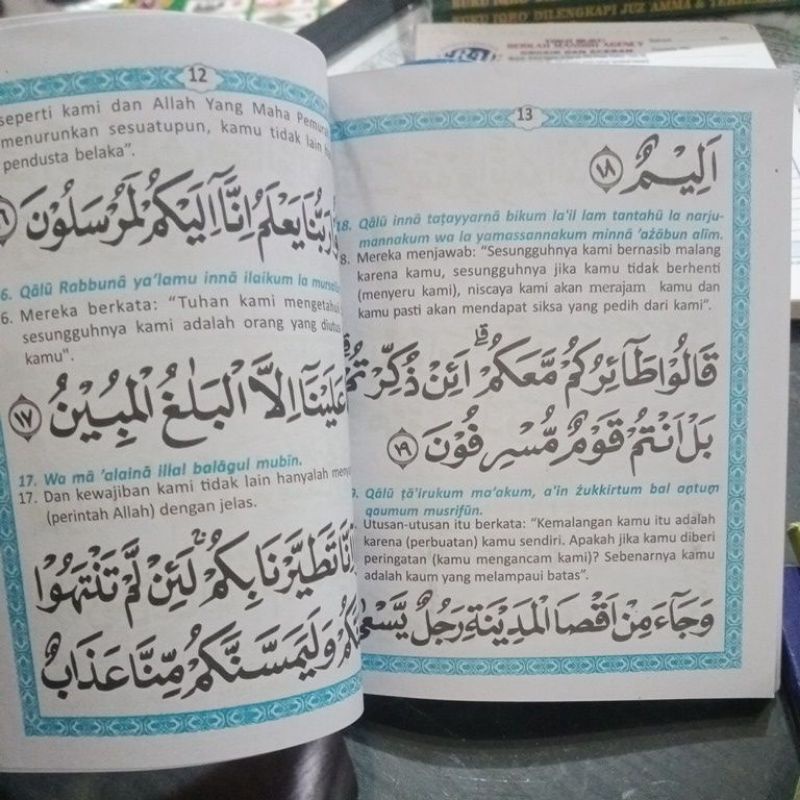 BUKU IQRO DILENGKAPI JUZ AMMA &
12
seperti kami dan Allah Yang Maha
menurunkan sesuatupun, kamu tidak lain
pendusta belaka”.
رَبُّنَا يَعْلَمُ اِنَّآ اِلَيْكُمْ لَمُرْسَلُوْنَ
6. Qālū Rabbunā ya’lamu innā ilaikum la
6. Mereka berkata: “Tuhan kami
sesungguhnya kami adalah orang yang
kamu".
عَلَيْنَآ اِلَّا الْبَلٰغُ الْمُبِيْنُ ١٧
17. Wa mā ’alainā illal balāgul mubīn.
17. Dan kewajiban kami tidak lain hanyalah
(perintah Allah) dengan jelas.
اِنَّا تَطَيَّرْنَا بِكُمْۚ لَئِنْ لَّمْ تَنْتَهُوْا
وَلَيَمَسَّنَّكُمْ مِّنَّا عَذَابٌ
13
اَلِيْمٌ ١٨
18. Qālū innā taṭayyarnā bikum la'il lam tantahū la narju-
mannakum wa la yamassannakum minnā ’ażābun alīm.
8. Mereka menjawab: “Sesungguhnya kami bernasib malang
karena kamu, sesungguhnya jika kamu tidak berhenti
(menyeru kami), niscaya kami akan merajam kamu dan
kamu pasti akan mendapat siksa yang pedih dari kami”.
قَالُوْا طَآئِرُكُمْ مَّعَكُمْۗ اَئِنْ ذُكِّرْتُمْۗ
بَلْ اَنْتُمْ قَوْمٌ مُّسْرِفُوْنَ ١٩
9. Qālū ṭā’irukum ma’akum, a’in żukkirtum bal antum
qaumum musrifūn.
Utusan-utusan itu berkata: “Kemalangan kamu itu adalah
karena (perbuatan) kamu sendiri. Apakah jika kamu diberi
peringatan (kamu mengancam kami)? Sebenarnya kamu
adalah kaum yang melampaui batas”.
وَجَآءَ مِنْ اَقْصَا الْمَدِيْنَةِ رَجُلٌ يَّسْعٰى